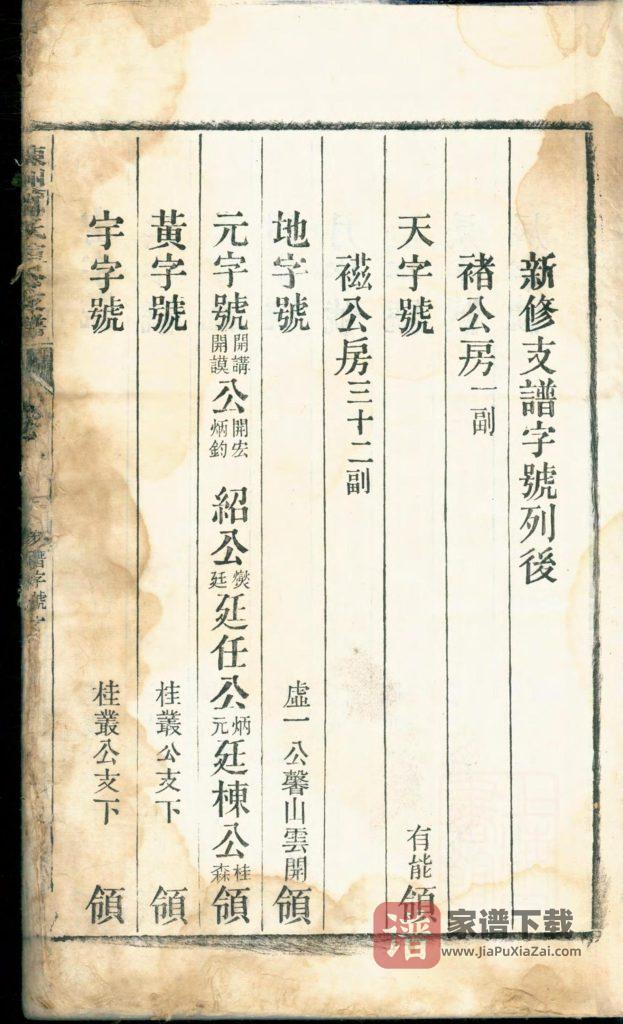 新修支譜字號列後
褚公房一副
天字號 有能領
禌公房三十二副
地字號 虛一公馨山雲開領
元字號開講開謨公開宏炳鈞 紹公燮廷廷任公炳元廷棟公桂森領
黃字號 桂叢公支下領
宇字號 桂叢公支下領
譜字號
譜
家谱下载
www.JiaPuXiaZai.com